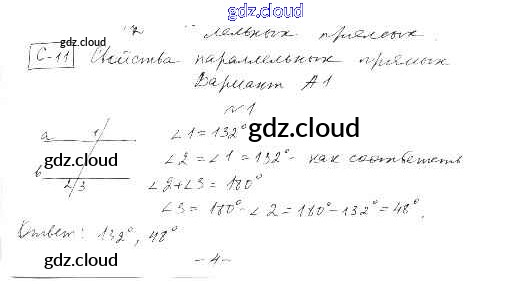 gdz.cloud
льных прямых.
С-11 Свойства параллельных прямых
gdz.cloud
Вариант А1
№1
a 1 ∠1 = 132°
gdz.cloud gdz.cloud
∠2 = ∠1 = 132° - как соответств
b
2 3 ∠2 + ∠3 = 180°
∠3 = 180° - ∠2 = 180° - 132° = 48°.
Ответ: 132°, 48°
gdz.cloud gdz.cloud
- 4 -